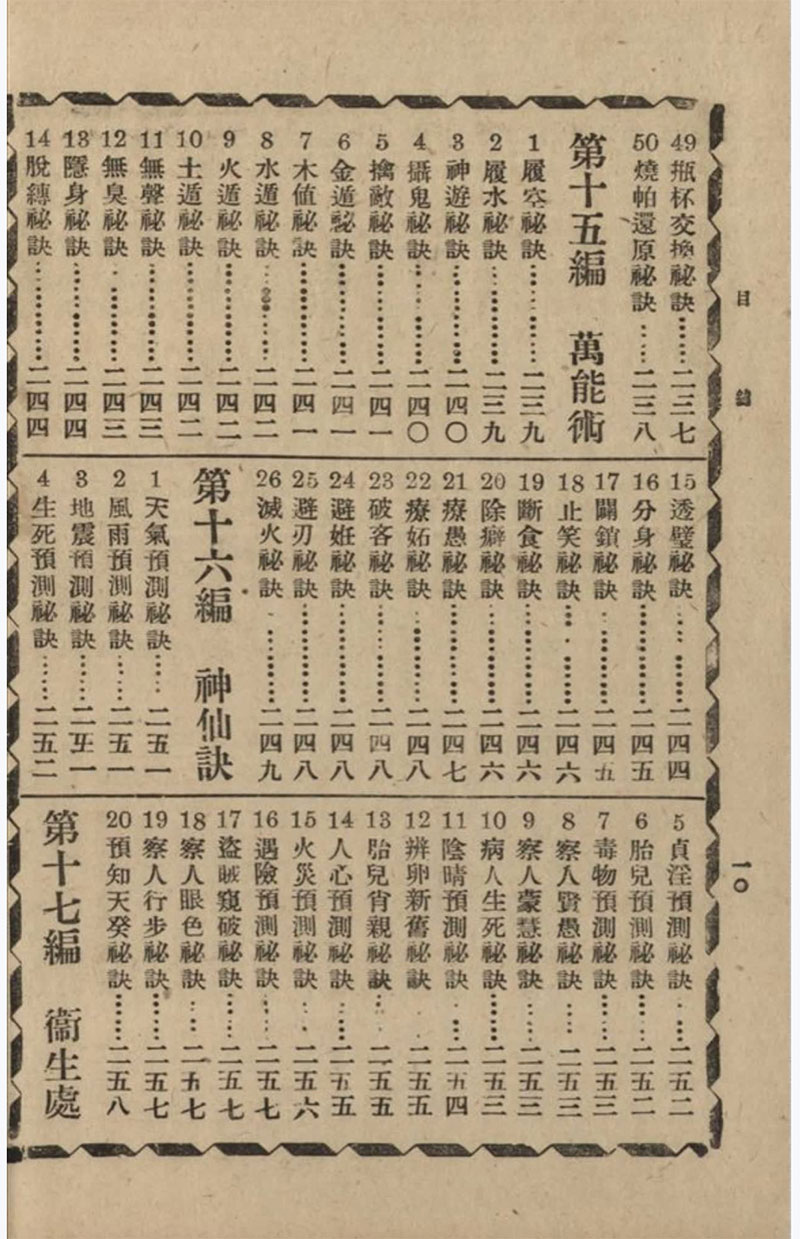 目錄
一〇
49 瓶杯交換祕訣……二三七
50 燒帕還原祕訣……二三八
第十五編 萬能術
1 履空祕訣……二三九
2 履水祕訣……二三九
3 神遊祕訣……二四〇
4 攝鬼祕訣……二四〇
5 擒敵祕訣……二四一
6 金遁祕訣……二四一
7 木値祕訣……二四一
8 水遁祕訣……二四二
9 火遁祕訣……二四二
10 土遁祕訣……二四二
11 無聲祕訣……二四三
12 無臭祕訣……二四三
13 隱身祕訣……二四四
14 脫縳祕訣……二四四
15 透壁祕訣……二四四
16 分身祕訣……二四五
17 鬭鎖祕訣……二四五
18 止笑祕訣……二四六
19 斷食祕訣……二四六
20 除癖祕訣……二四六
21 療愚祕訣……二四七
22 療妬祕訣……二四八
23 破吝祕訣……二四八
24 避姙祕訣……二四八
25 避刃祕訣……二四八
26 滅火祕訣……二四九
第十六編 神仙訣
1 天氣預測祕訣……二五一
2 風雨預測祕訣……二五一
3 地震預測祕訣……二五一
4 生死預測祕訣……二五二
5 貞淫預測祕訣……二五二
6 胎兒預測祕訣……二五二
7 毒物預測祕訣……二五三
8 察人賢愚祕訣……二五三
9 察人蒙慧祕訣……二五三
10 病人生死祕訣……二五三
11 陰晴預測祕訣……二五四
12 辨卵新舊祕訣……二五五
13 胎兒肖親祕訣……二五五
14 人心預測祕訣……二五五
15 火災預測祕訣……二五六
16 遇險預測祕訣……二五七
17 盜賊窺破祕訣……二五七
18 察人眼色祕訣……二五七
19 察人行步祕訣……二五七
20 預知天癸祕訣……二五八
第十七編 衞生處